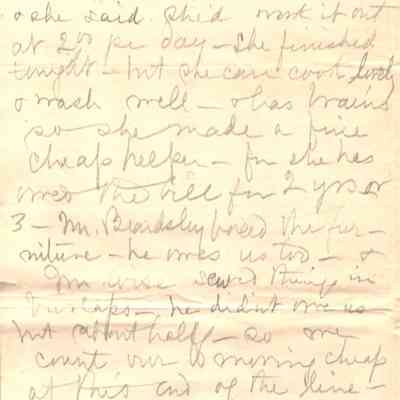 & she said she'd work it out
at 2 00 per day – she finished
tonight – but she can cook lovely
& wash well – & has brains
so she made a fine
cheap helper – for she has
owed the bill for 2 yrs or
3 – Mr. Beardsley boxed the fur-
niture – he owes us too – &
sewed things in
burlaps – he didn't owe us
but about half – so we
count our moving cheap
at this end of the line –